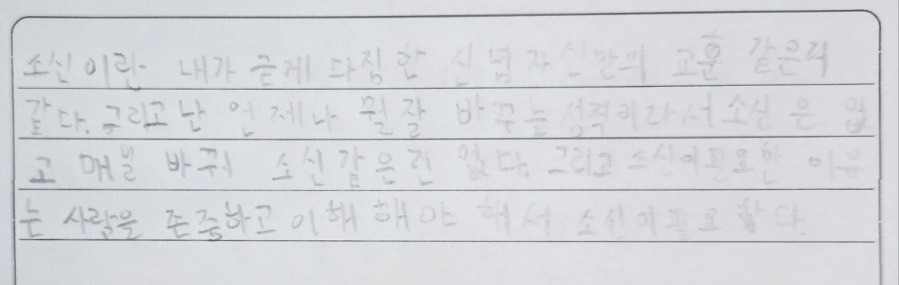 소신이란 내가 굳게 다짐한 신념 자신만의 교훈 같은거
같다. 그리고 난 언제나 뭘 잘 바꾸는 성격이라서 소신은 없
고 매일 바꿔 소신 같은건 없다. 그리고 소신이 필요한 이유
는 사람을 존중하고 이해해야 해서 소신이 필요하다.